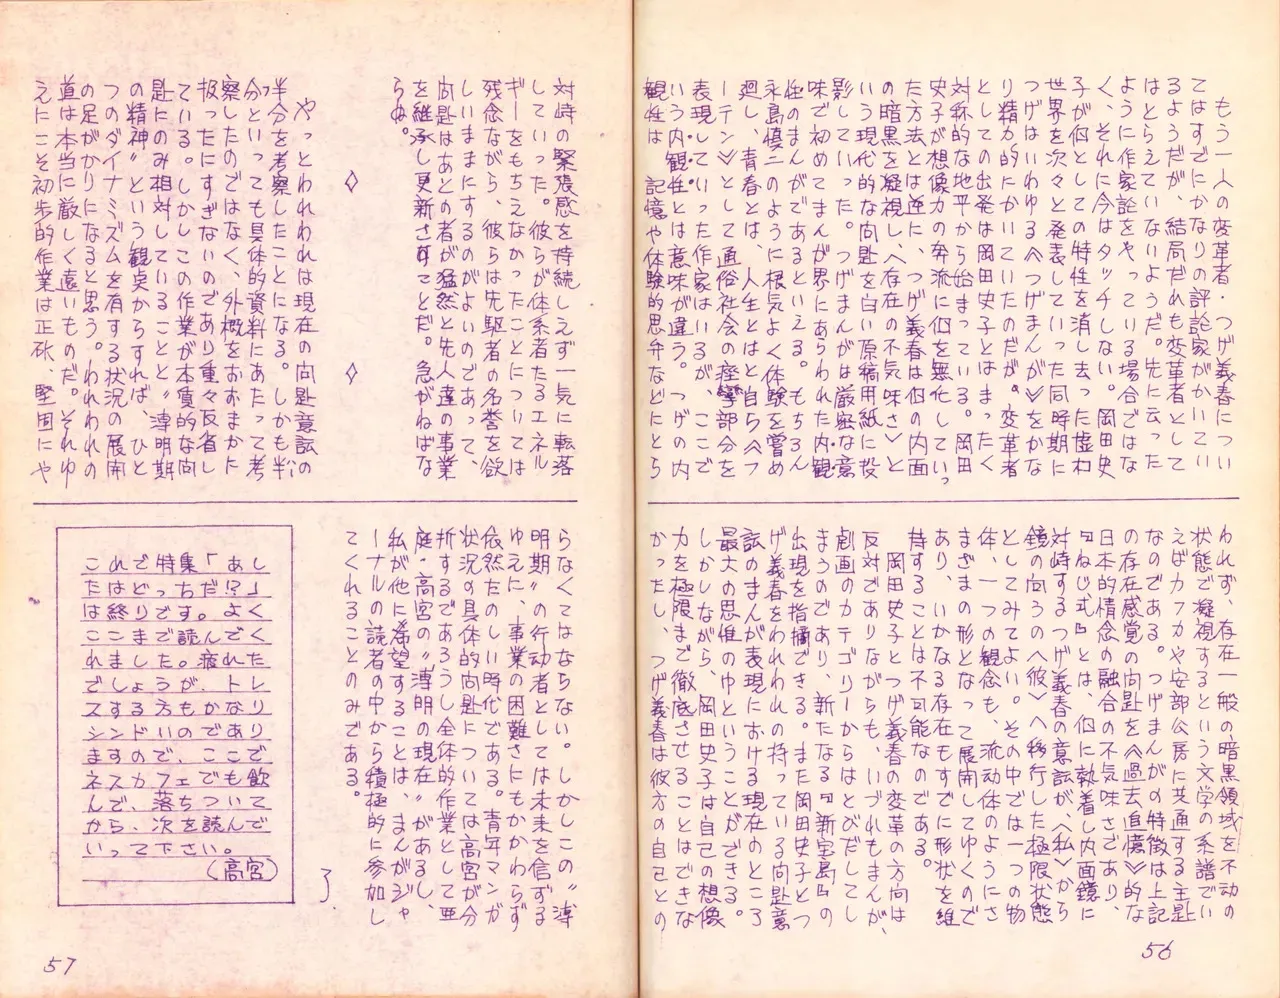 もう一人の変革者・つげ義春につい
てはすでにかなりの評論家がかいてい
るようだが、結局だれも変革者として
はとらえていないようだ。先に云った
ように作家論をやっている場合ではな
く、それに今はタッチしない。岡田史
子が個としての特性を消し去った虚わ
世界を次々と発表していった同時期に
つげはいわゆる《つげまんが》をかな
り精力的にかいていたのだが。変革者
としての出発は岡田史子とはまったく
対称的な地平から始まっている。岡田
史子が想像力の奔流に個を無化していっ
た方法とは逆に、つげ義春は個の内面
の暗黒を凝視し、〈存在の不気味さ〉と
いう現代的な問題を白い原稿用紙に投
影していった。つげまんがは厳密な意
味で初めてまんが界にあらわれた内・観・
性のまんがであるといえる。もちろん
永島慎二のように根気よく体験を嘗め
廻し、青春とは、人生とはと自ら〈フ
ーテン〉として通俗社会の痙攣部分を
表現していった作家はいるが、ここで
いう内・観・性とは意味が違う。つげの内
観性は 記憶や体験的思弁などにとら
われず、存在一般の暗黒領域を不動の
状態で凝視するという文学の系譜でい
えばカフカや安部公房に共通する主題
なのである。つげまんがの特徴は上記
の存在感覚の問題を《過去追憶》的な
日本的情念の融合の不気味さであり、
『ねじ式』とは、個に執着し内面鏡に
対峙するつげ義春の意識が、〈私〉から
鏡の向うの〈彼〉へ移行した極限状態
としてみてよい。その中では一つの物
体、一つの観念も、流動体のようにさ
まざまの形となって展開してゆくので
あり、いかなる存在もすでに形状を維
持することは不可能なのである。
岡田史子とつげ義春の変革の方向は
反対でありながらも、いづれもまんが、
劇画のカテゴリーからはとびだしてし
まうのであり、新たなる『新宝島』の
出現を指摘できる。また岡田史子とつ
げ義春をわれわれの持っている問題意
識のまんが表現における現在のところ
最大の思惟のゆということができる。
しかしながら、岡田史子は自己の想像
力を極限まで徹底させることはできな
かったし、つげ義春は彼方の自己との
56
対峙の緊張感を持続しえず一気に転落
していった。彼らが体系者たるエネル
ギーをもちえなかったことについては
残念ながら、彼らは先駆者の名誉を欲
しいままにするのがよいのであって、
問題はあとの者が猛然と先人達の事業
を継承し更新さすことだ。急がねばな
らぬ。
◇ ◇
やっとわれわれは現在の問題意識の
半分を考察したことになる。しかも半
分といっても具体的資料にあたって考
察したのではなく、外概をおおまかに
扱ったにすぎないのであり重々反省し
ている。しかしこの作業が本質的な問
題にのみ相対していることと〝薄明期
の精神〟という観点からすれば、ひと
つのダイナミズムを有する状況の展開
の足がかりになると思う。われわれの
道は本当に厳しく遠いものだ。それゆ
えにこそ初歩的作業は正確、堅固にや
らなくてはならない。しかしこの〝薄
明期〟の行動者としては未来を信ずる
ゆえに、事業の困難さにもかかわらず
依然たのしい時代である。青年マンガ
状況の具体的問題については高宮が分
析するであろうし全体的作業として亜
庭・高宮の〝薄明の現在〟があるし、
私が他に希望することは、まんがジャ
ーナルの読者の中から積極的に参加し
てくれることのみである。
了
これで特集「あし
たはどっちだ!?」
は終りです。よく
ここまで読んでく
れました。疲れた
でしょうが、トレ
スする方もかなり
シンドいのであり
ますので、ここで
ネスカフェでも飲
んで、落ちついて
から、次を読んで
いって下さい。
(高宮)
57